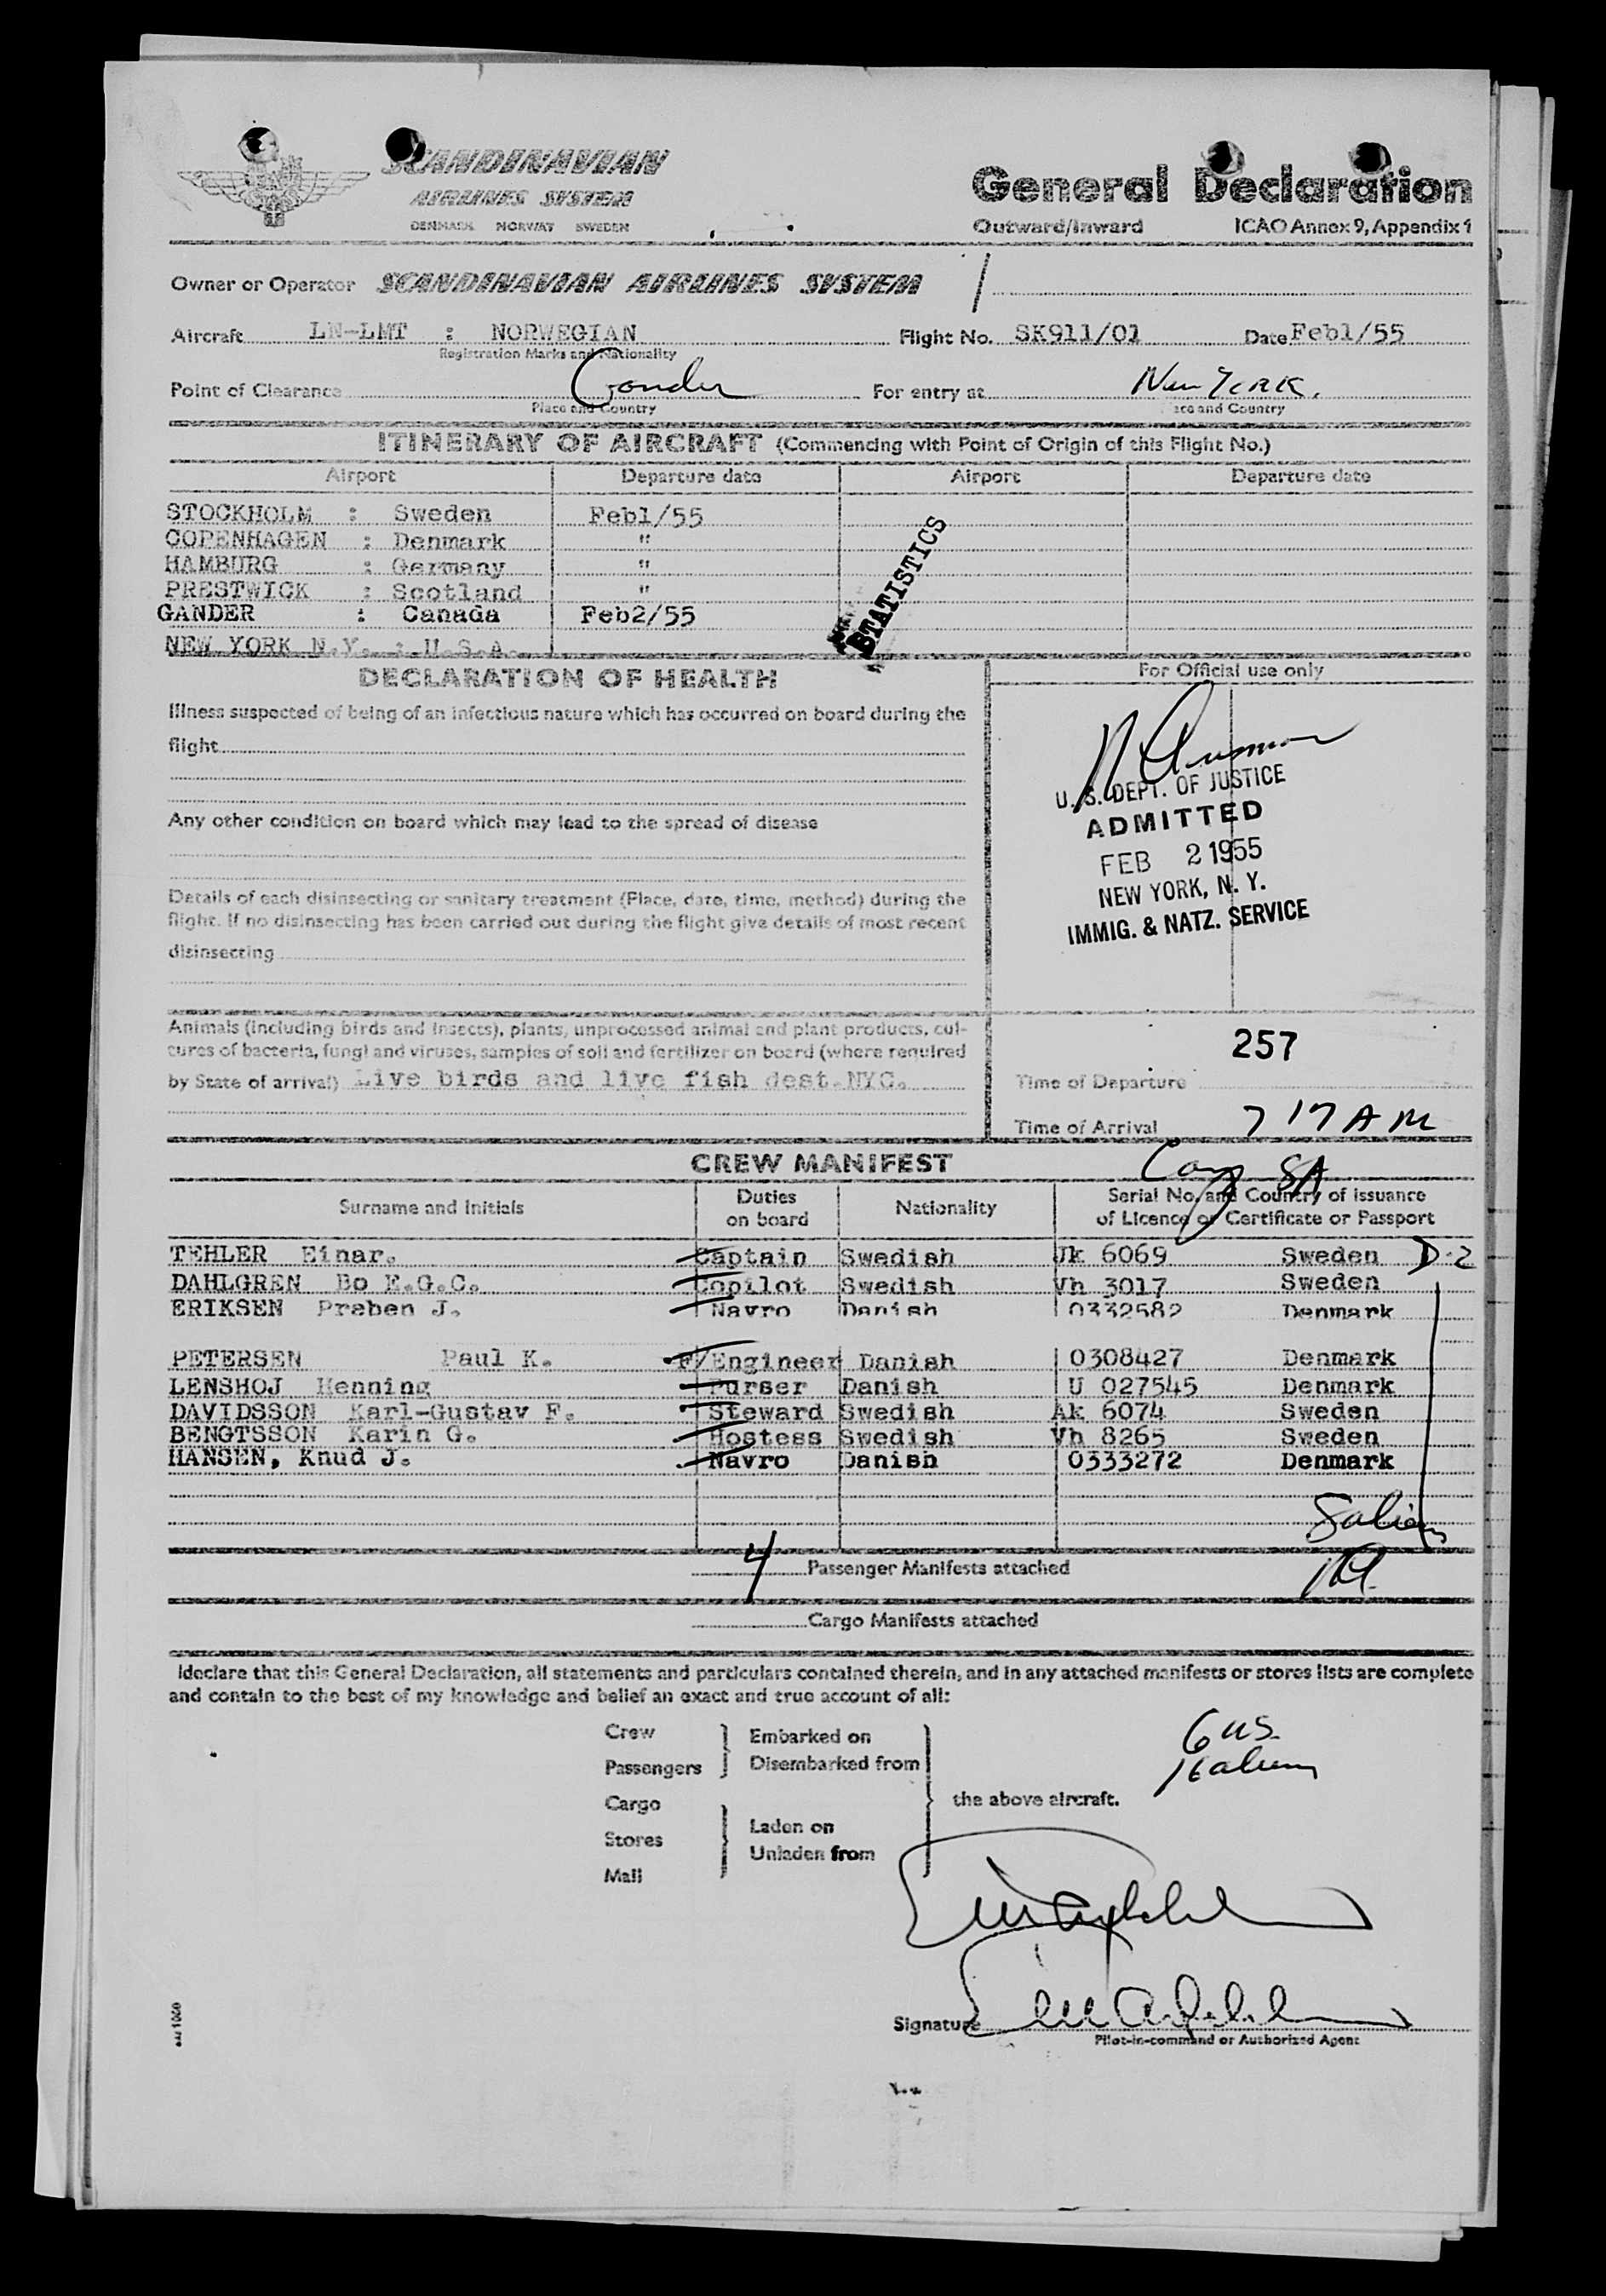 SCANDINAVIAN
AIRLINES SYSTEM
DENMARK NORWAY SWEDEN
General Declaration
Outward/Inward ICAO Annex 9, Appendix 1
Owner or Operator SCANDINAVIAN AIRLINES SYSTEM
Aircraft LN-LMT : NORWEGIAN Flight No. SK911/01 Date Feb1/55
Registration Marks and Nationality
Point of Clearance Gander For entry at New York.
Place and Country ace and Country
ITINERARY OF AIRCRAFT (Commencing with Point of Origin of this Flight No.)
Airport Departure date Airport Departure date
STOCKHOLM : Sweden Feb1/55
COPENHAGEN : Denmark "
HAMBURG : Germany "
PRESTWICK : Scotland "
GANDER : Canada Feb2/55
NEW YORK N.Y. : U.S.A.
STATISTICS
DECLARATION OF HEALTH
For Official use only
Illness suspected of being of an infectious nature which has occurred on board during the
flight
Any other condition on board which may lead to the spread of disease
Details of each disinsecting or sanitary treatment (Place, date, time, method) during the
flight. If no disinsecting has been carried out during the flight give details of most recent
disinsecting
U. S. DEPT. OF JUSTICE
ADMITTED
FEB 2 1955
NEW YORK, N. Y.
IMMIG. & NATZ. SERVICE
Animals (including birds and insects), plants, unprocessed animal and plant products, cul-
tures of bacteria, fungi and viruses, samples of soil and fertilizer on board (where required
by State of arrival) Live birds and live fish dest.NYC.
257
Time of Departure
Time of Arrival 7 17 AM
CREW MANIFEST
Surname and Initials Duties on board Nationality Serial No. and Country of issuance of Licence or Certificate or Passport
TEHLER Einar. Captain Swedish Uk 6069 Sweden D-2
DAHLGREN Bo E.G.C. Copilot Swedish Vh 3017 Sweden
ERIKSEN Preben J. Navro Danish 0332582 Denmark
PETERSEN Paul K. F/Engineer Danish 0308427 Denmark
LENSHOJ Henning Purser Danish U 027545 Denmark
DAVIDSSON Karl-Gustav F. Steward Swedish Ak 6074 Sweden
BENGTSSON Karin G. Hostess Swedish Vh 8265 Sweden
HANSEN, Knud J. Navro Danish 0333272 Denmark
4 Passenger Manifests attached
Cargo Manifests attached
I declare that this General Declaration, all statements and particulars contained therein, and in any attached manifests or stores lists are complete
and contain to the best of my knowledge and belief an exact and true account of all:
Crew
Passengers
Embarked on
Disembarked from
Cargo
Stores
Mail
Laden on
Unladen from
the above aircraft.
6 US.
Signature
Pilot-in-command or Authorized Agent